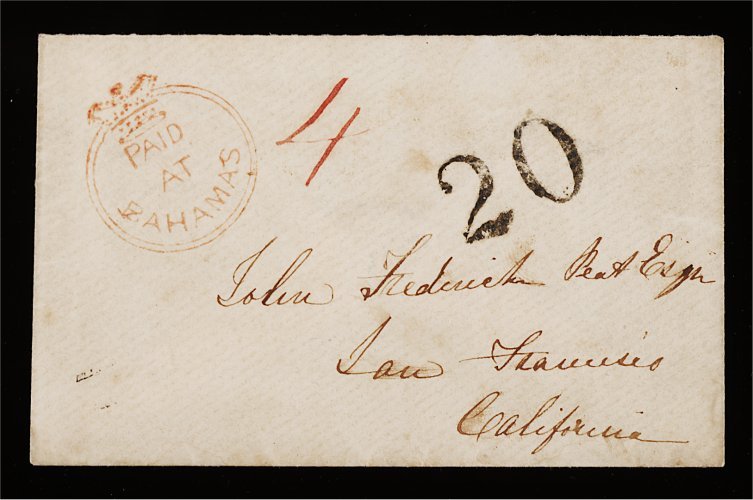 PAID
AT
BAHAMAS
4
20
John Frederick Peat Esqr
San Francisco
California